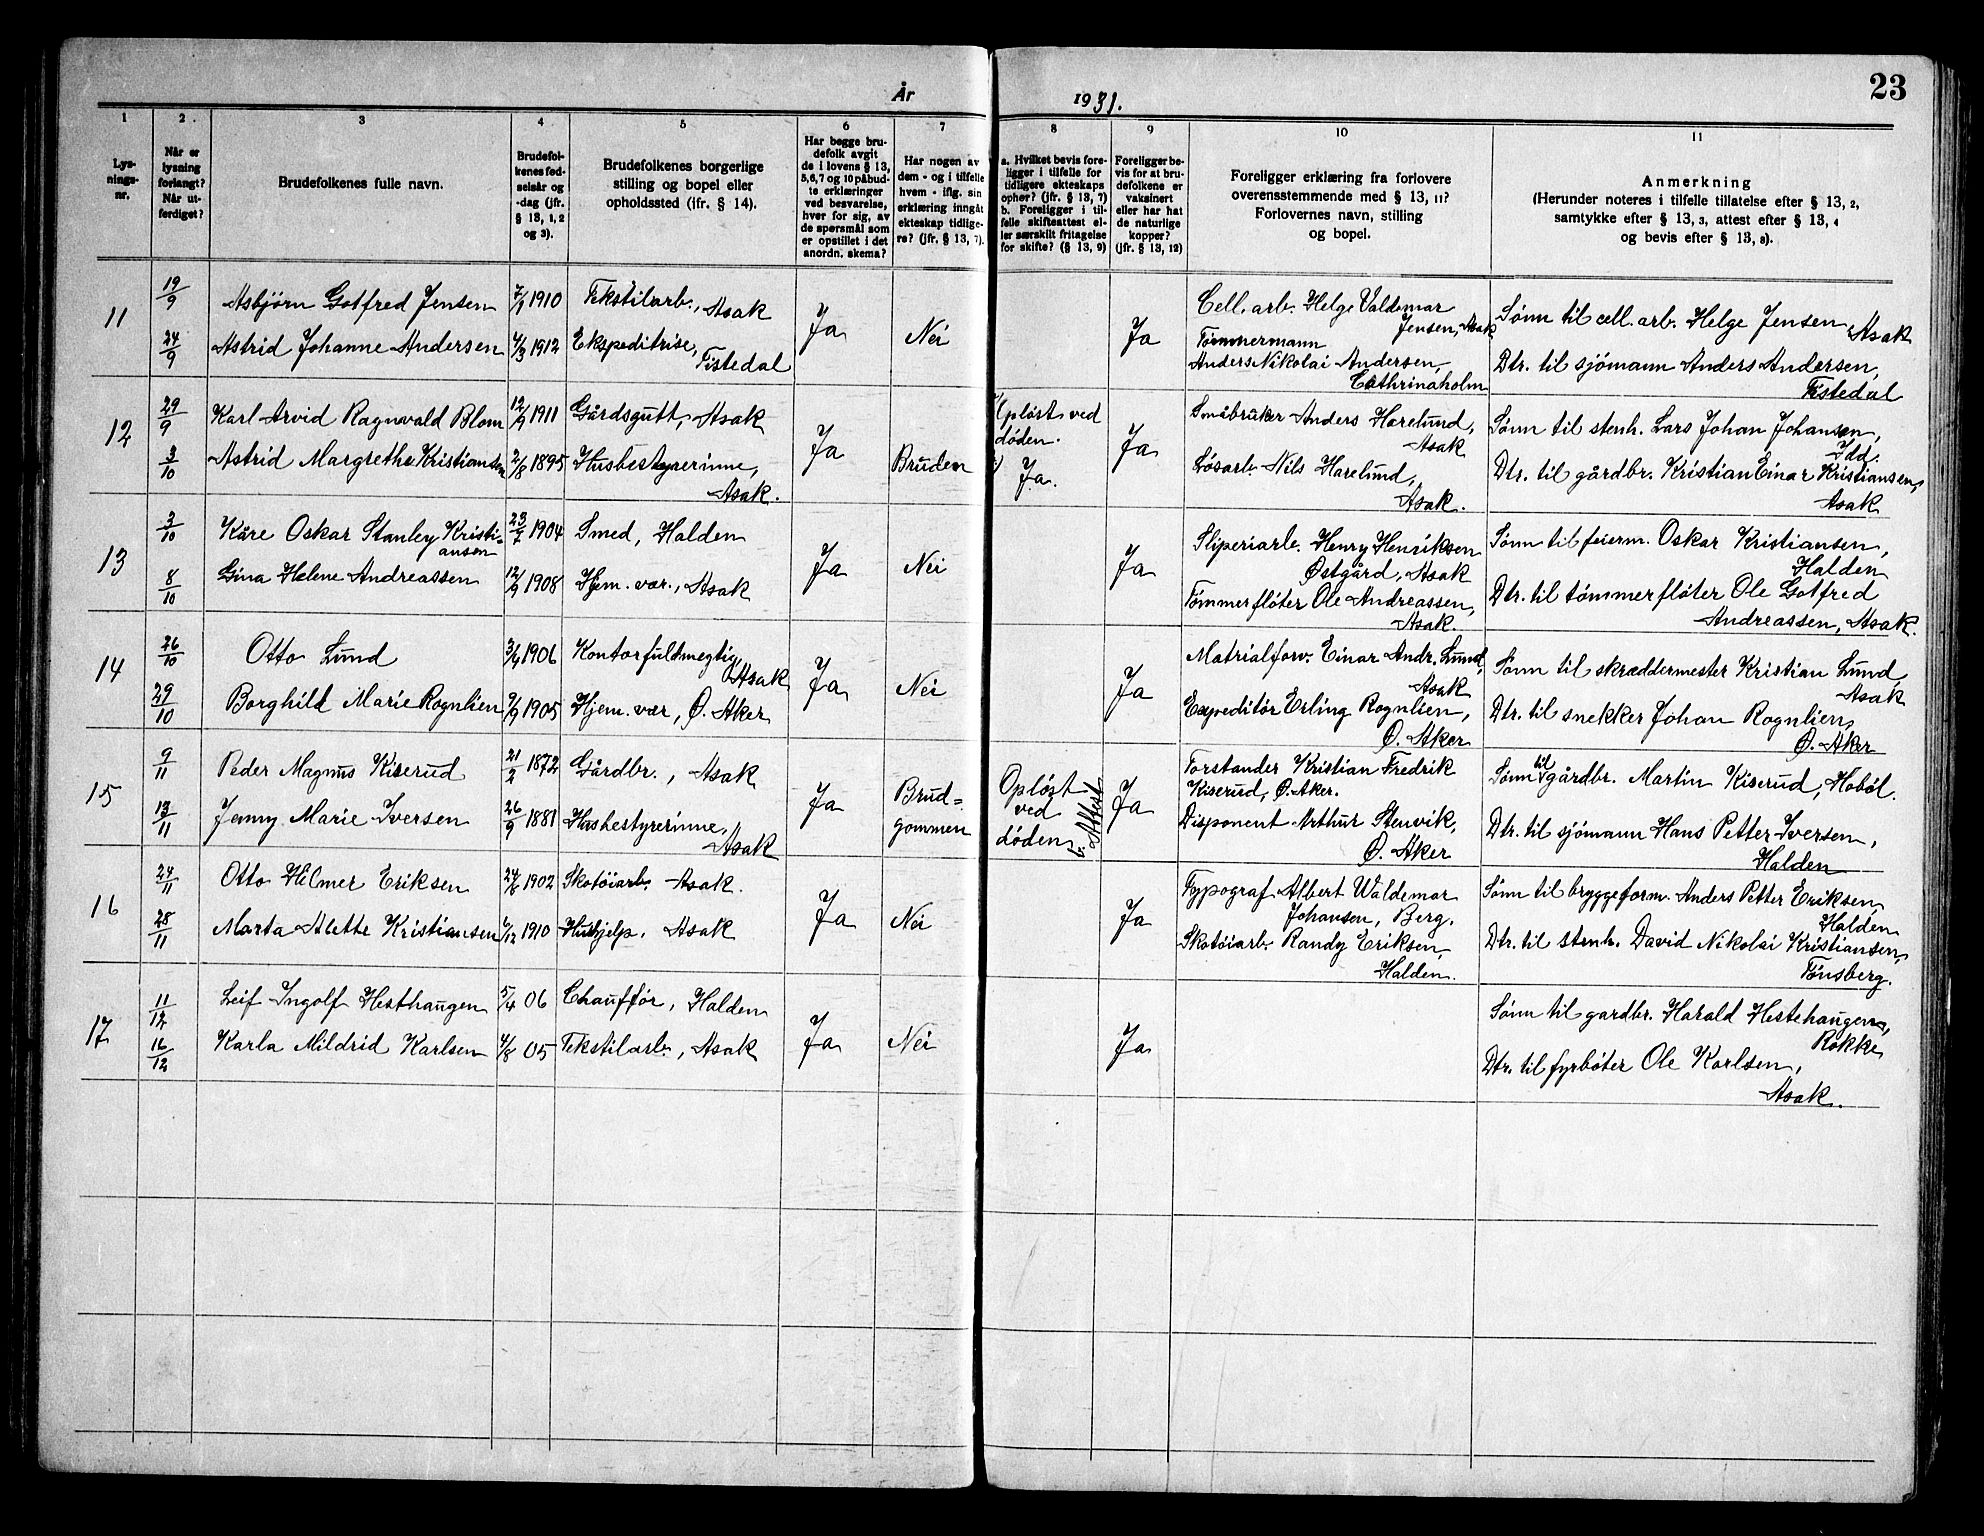 År 1931. 23
1 2 3 4 5 6 7 8 9 10 11
Lys-
nings-
nr.
Når er
lysning
forlangt?
Når ut-
ferdiget?
Brudefolkenes fulle navn.
Brudefol-
kenes fød-
selsår og
-dag (jfr.
§ 13, 1, 2
og 3).
Brudefolkenes borgerlige
stilling og bopel eller
opholdssted (jfr. § 14).
Har begge bru-
defolk avgit
de i lovens § 13,
5, 6, 7 og 10 påbud-
te erklæringer
ved besvarelse,
hver for sig, av
de spørsmål som
er opstillet i det
anordn. skema?
Har nogen av
dem - og i tilfelle
hvem - iflg. sin
erklæring inngåt
ekteskap tidlige-
re? (jfr. § 13, 7).
a. Hvilket bevis fore-
ligger i tilfelle for
tidligere ekteskaps
ophør? (jfr. § 13, 7)
b. Foreligger i til-
felle skifteattest el-
ler særskilt fritagelse
for skifte? (§ 13, 9)
Foreligger be-
vis for at bru-
defolkene er
vaksinert
eller har hat
de naturlige
kopper?
(jfr. § 13, 12)
Foreligger erklæring fra forlovere
overensstemmende med § 13, 11?
Forlovernes navn, stilling
og bopel.
Anmerkning
(Herunder noteres i tilfelle tillatelse efter § 13, 2,
samtykke efter § 13, 3, attest efter § 13, 4
og bevis efter § 13, 8).
11
19/9 Asbjørn Gotfred Jensen 1910 Tekstilarb., Asak
24/9 Astrid Johanne Andersen 4/3 1912 Ekspeditrise,
Tistedal
Ja Nei Ja
Cell. arb. Helge Valdemar
Jensen, Asak
Tømmermann
Anders Nikolai Andersen,
Cathrinaholm
Sønn til cell. arb. Helge Jensen, Asak
Dtr. til sjømann Anders Andersen,
Tistedal
12
29/9 Karl Arvid Ragnvald Blom 12/9 1911 Gårdsgutt, Asak
3/10 Astrid Margrethe Kristiansen 2/8 1895 Husbestyrerinne,
Asak.
Ja Bruden
Opløst ved
døden.
Ja.
Ja
Småbruker Anders Harelund,
Asak
Løsarb. Nils Harelund,
Asak.
Sønn til stenh. Lars Johan Johansen,
Idd.
Dtr. til gårdbr. Kristian Einar Kristiansen,
Asak
13
3/10 Kåre Oskar Stanley Kristi-
ansen
1904 Smed, Halden
8/10 Gina Helene Andreassen 12/9 1908 Hjem. vær., Asak
Ja Nei Ja
Sliperiarb. Henry Henriksen
Østgård, Asak
Tømmerfløter Ole Andreassen,
Asak.
Sønn til feierm. Oskar Kristiansen,
Halden
Dtr. til tømmerfløter Ole Gotfred
Andreassen, Asak.
14
26/10 Otto Lund 1906 Kontorfuldmegtig
Asak
29/10 Borghild Marie Rognlien 9/9 1905 Hjem. vær, Ø. Aker
Ja Nei Ja
Matrialforv. Einar Andr. Lund,
Asak
Expeditør Erling Rognlien,
Ø. Aker
Sønn til skræddermester Kristian Lund,
Asak
Dtr. til snekker Johan Rognlien,
Ø. Aker
15
9/11 Peder Magnus Kiserud 21/2 1872 Gårdbr., Asak
13/11 Jenny Marie Iversen 26/9 1881 Husbestyrerinne,
Asak
Ja
Brud=
gommen
Opløst
ved
døden
b. Attest
Ja
Forstander Kristian Fredrik
Kiserud, Ø. Aker.
Disponent Arthur Stenvik,
Ø. Aker
Sønn til gårdbr. Martin Kiserud, Hobøl.
Dtr. til sjømann Hans Petter Iversen,
Halden
16
24/11 Otto Hilmer Eriksen 1902 Skotøiarb. Asak.
28/11 Marta Alette Kristiansen 6/12 1910 Hushjelp. Asak
Ja Nei Ja
Typograf Albert Waldemar
Johansen, Berg.
Skotøiarb. Randy Eriksen,
Halden.
Sønn til bryggeform. Anders Petter Eriksen,
Halden
Dtr. til stenh. David Nikolai Kristiansen,
Tønsberg.
17
11/12 Leif Ingolf Hesthaugen 5/4 06 Chauffør, Halden
16/12 Karla Mildrid Karlsen 4/8 05 Tekstilarb., Asak
Ja Nei Ja
Sønn til gardbr. Harald Hestehaugen,
Rokke
Dtr. til fyrbøter Ole Karlsen,
Asak.